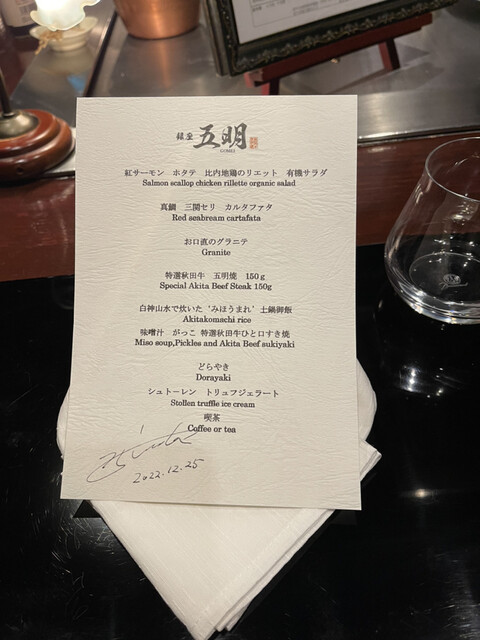 銀座 五明
GOMEI
紅サーモン ホタテ 比内地鶏のリエット 有機サラダ
Salmon scallop chicken rillette organic salad
真鯛 三関セリ カルタファタ
Red seabream cartafata
お口直のグラニテ
Granite
特選秋田牛 五明焼 150g
Special Akita Beef Steak 150g
白神山水で炊いた‘みほうまれ’土鍋御飯
Akitakomachi rice
味噌汁 がっこ 特選秋田牛ひと口すき焼
Miso soup,Pickles and Akita Beef sukiyaki
どらやき
Dorayaki
シュトーレン トリュフジェラート
Stollen truffle ice cream
喫茶
Coffee or tea
2022.12.25